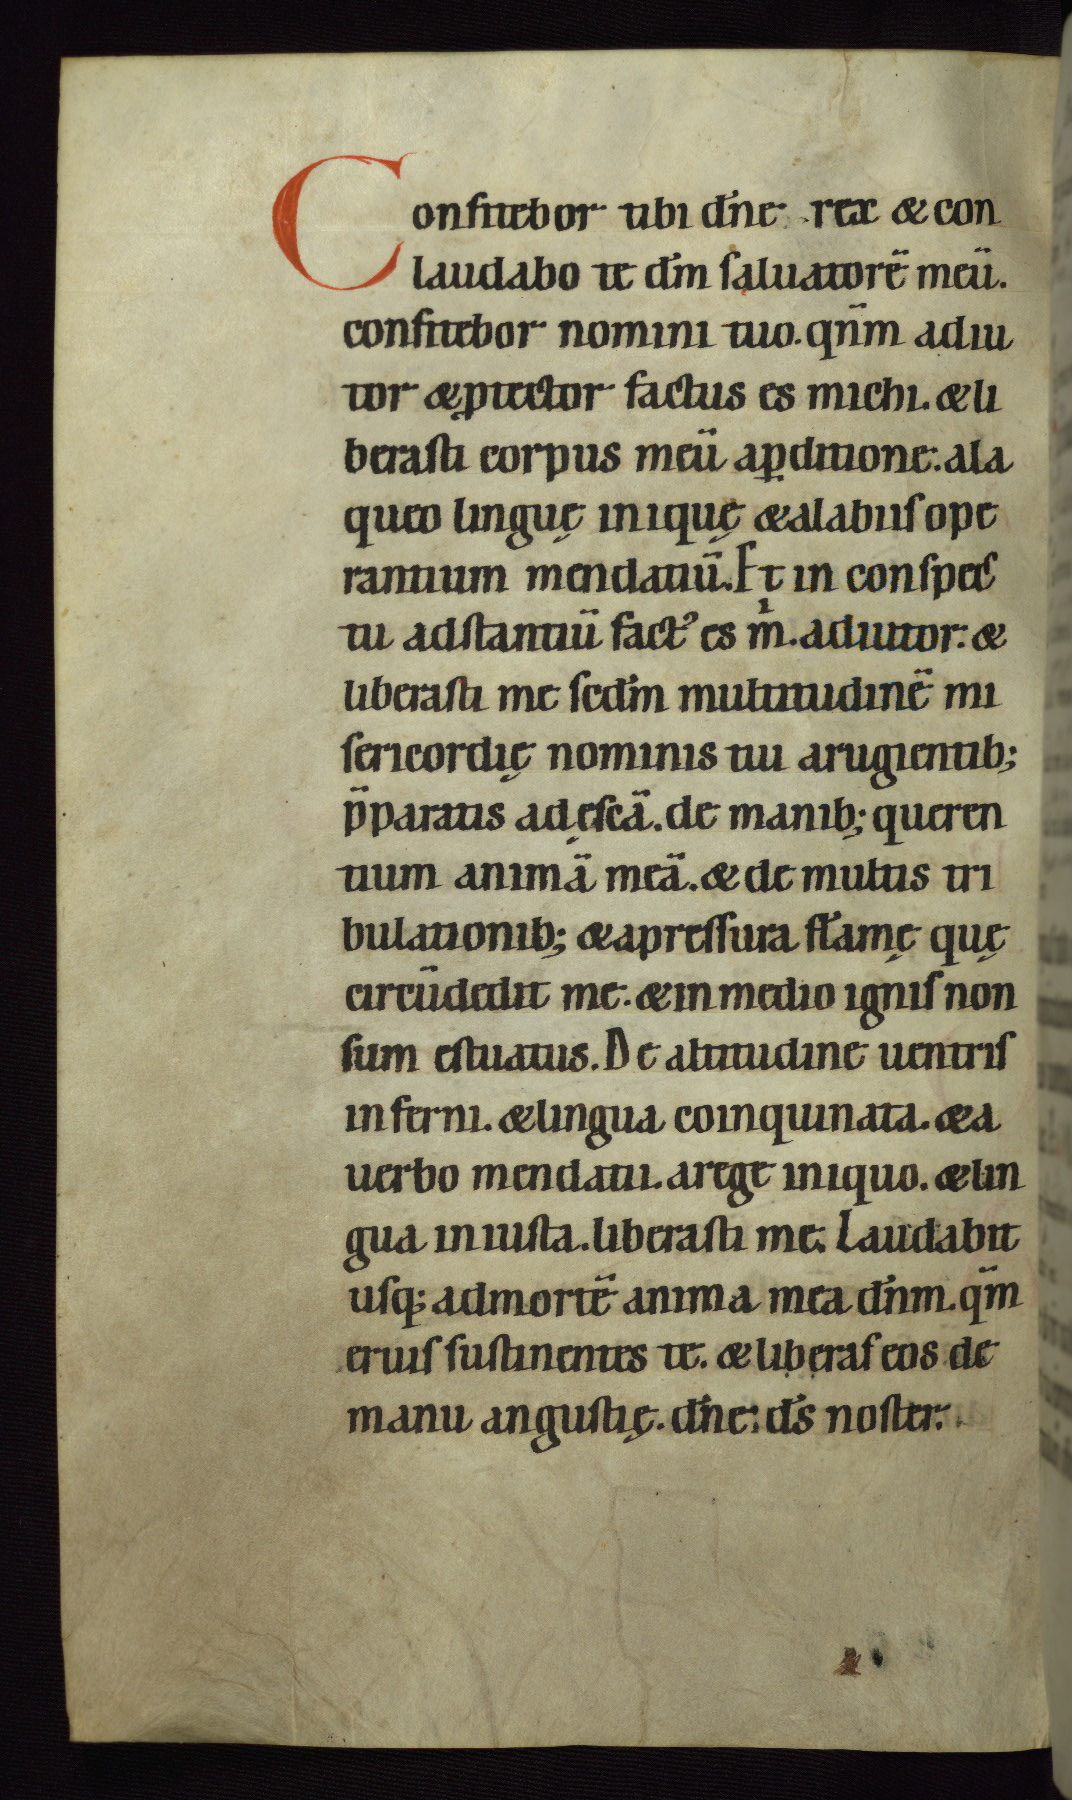 Confitebor tibi dñe rex & con
laudabo te dm̃ saluatorẽ meũ.
confitebor nomini tuo. qñm adiu
tor & ꝓtector factus es michi. & li
berasti corpus meũ aꝑditione: ala
queo linguę iniquę & alabiis ope
rantium mendatiũ. Et in conspec
tu adstantiũ factꝰ es m̃. adiutor: &
liberasti me scdm̃ multitudinẽ mi
sericordię nominis tui arugientib;
p̃paratis ad ęscã. de manib; queren
tium animã meã. & de multis tri
bulationib; & apressura flãmę quę
circũdedit me. & in medio ignis non
sum estuatus. De altitudine uentris
inferni. & lingua coinquinata. & a
uerbo mendatii. arege iniquo. & lin
gua iniusta. liberasti me. Laudabit
usq; admortẽ anima mea dñm. qm̃
eruis sustinentes te. & liberas eos de
manu angustię. dñe: ds̃ noster.